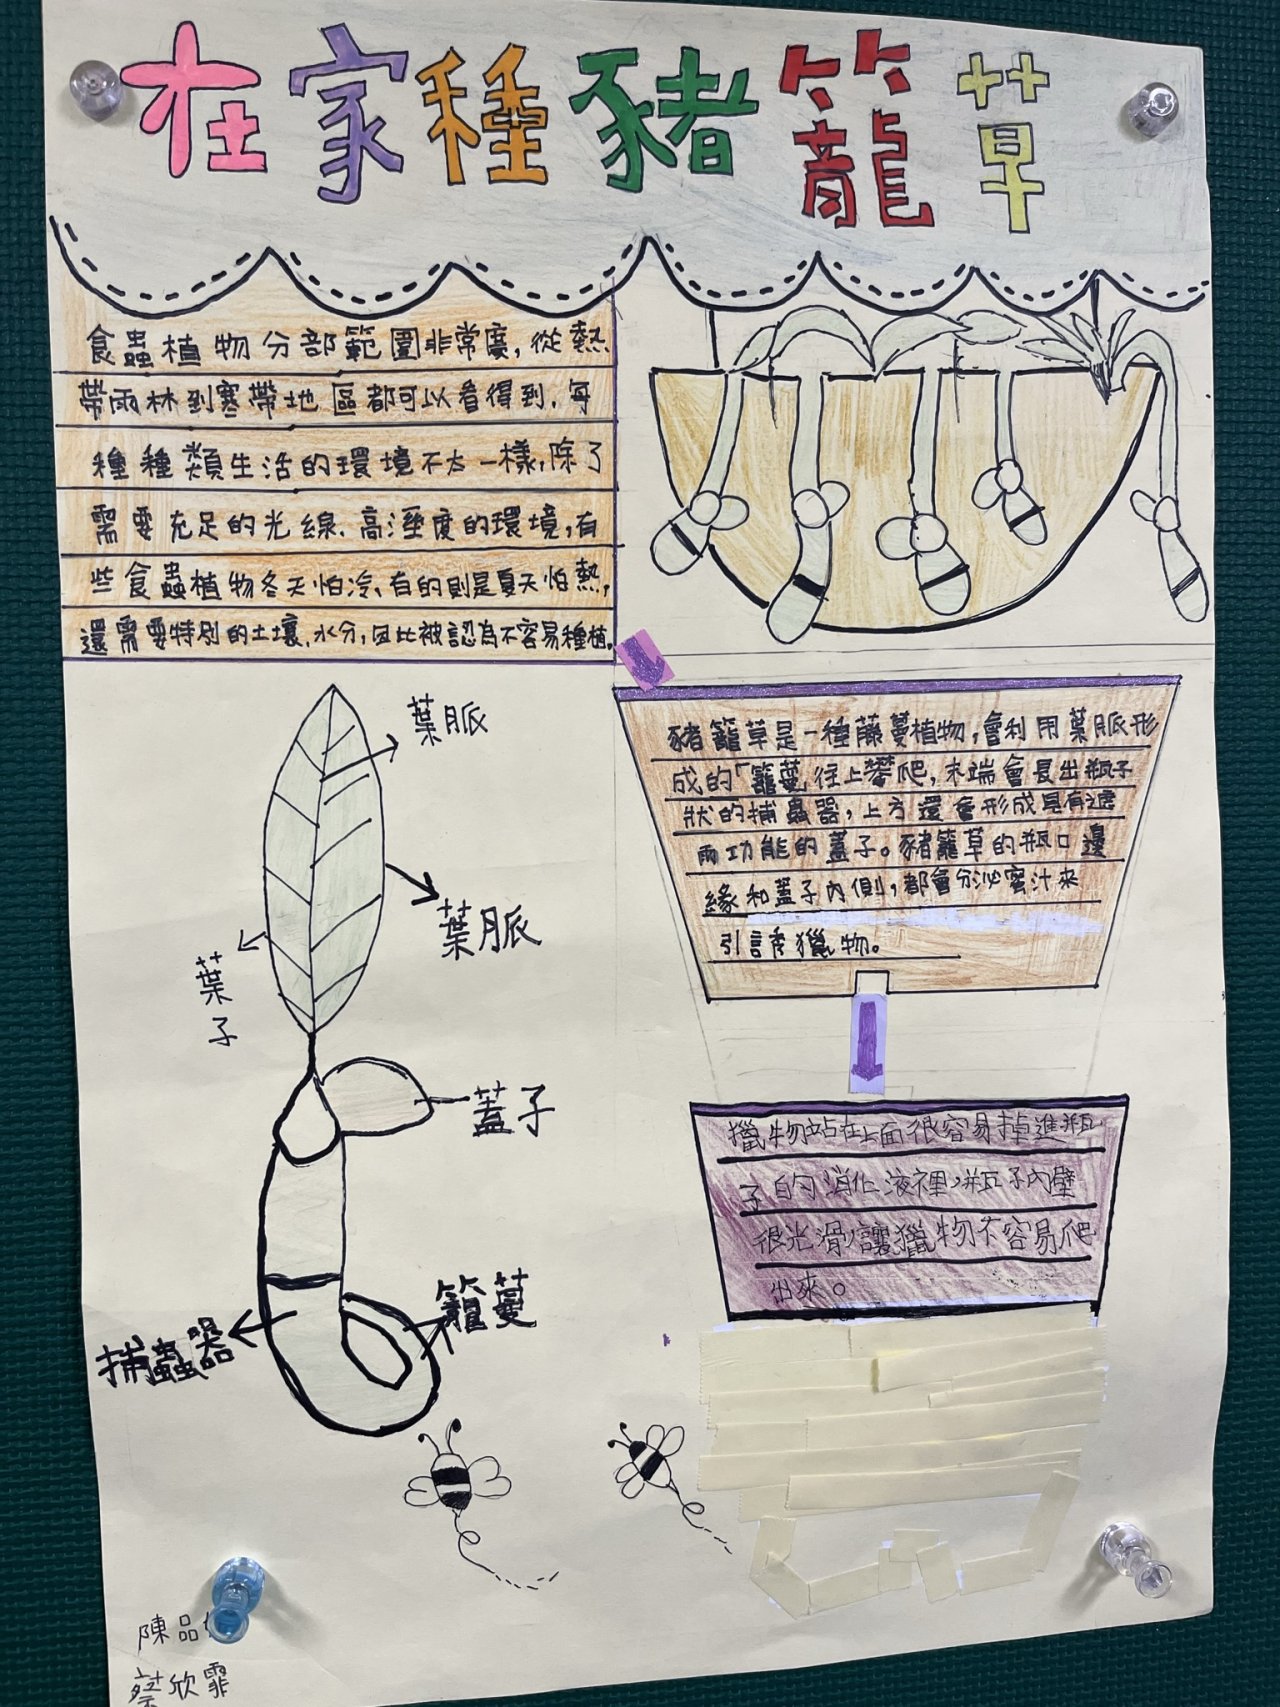 在家種豬籠草
食蟲植物分部範圍非常廣,從熱
帶雨林到寒帶地區都可以看得到,每
種種類生活的環境不太一樣,除了
需要充足的光線、高溼度的環境,有
些食蟲植物冬天怕冷、有的則是夏天怕熱,
還需要特別的土壤、水分,因此被認為不容易種植。
豬籠草是一種藤蔓植物,會利用葉脈形
成的「籠蔓往上攀爬,末端會長出瓶子
狀的捕蟲器,上方還會形成具有遮
雨功能的蓋子。豬籠草的瓶口邊
緣和蓋子內側,都會分泌蜜汁來
引誘獵物。
獵物站在上面很容易掉進瓶
子的消化液裡,瓶子內壁
很光滑,讓獵物不容易爬
出來。
葉脈
葉脈
葉子
蓋子
籠蔓
捕蟲器
陳品
蔡欣霏